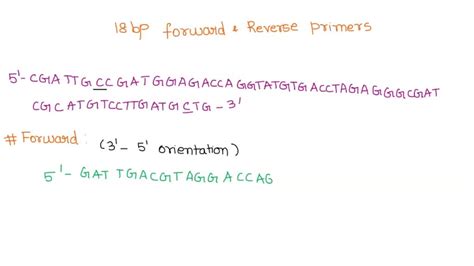 18bp forward & Reverse primers
5'- CGATTGCCGATGGAGACCAGGTATGTGACCTAGAGGGCGAT
CGCATGTCCTTGATGCTG-3'
# Forward: (3'- 5' orientation)
5'- GATTGACGTAGGACCAG